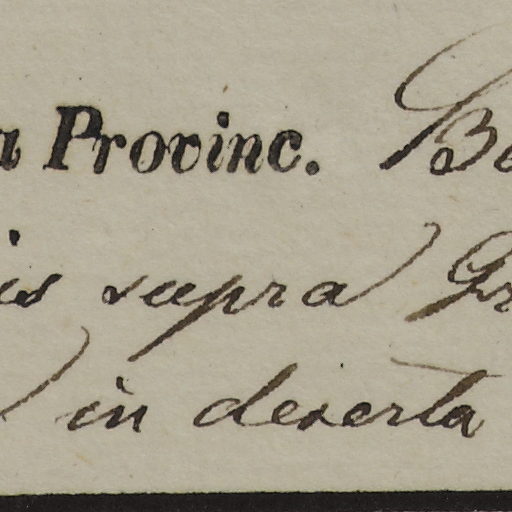 a Provinc. Be
is supra) Gr
) in deserta